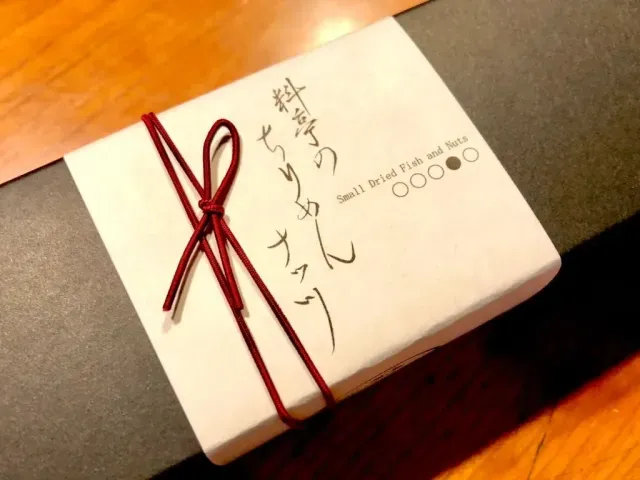 料亭の
ちりめん
ナッツ
Small Dried Fish and Nuts